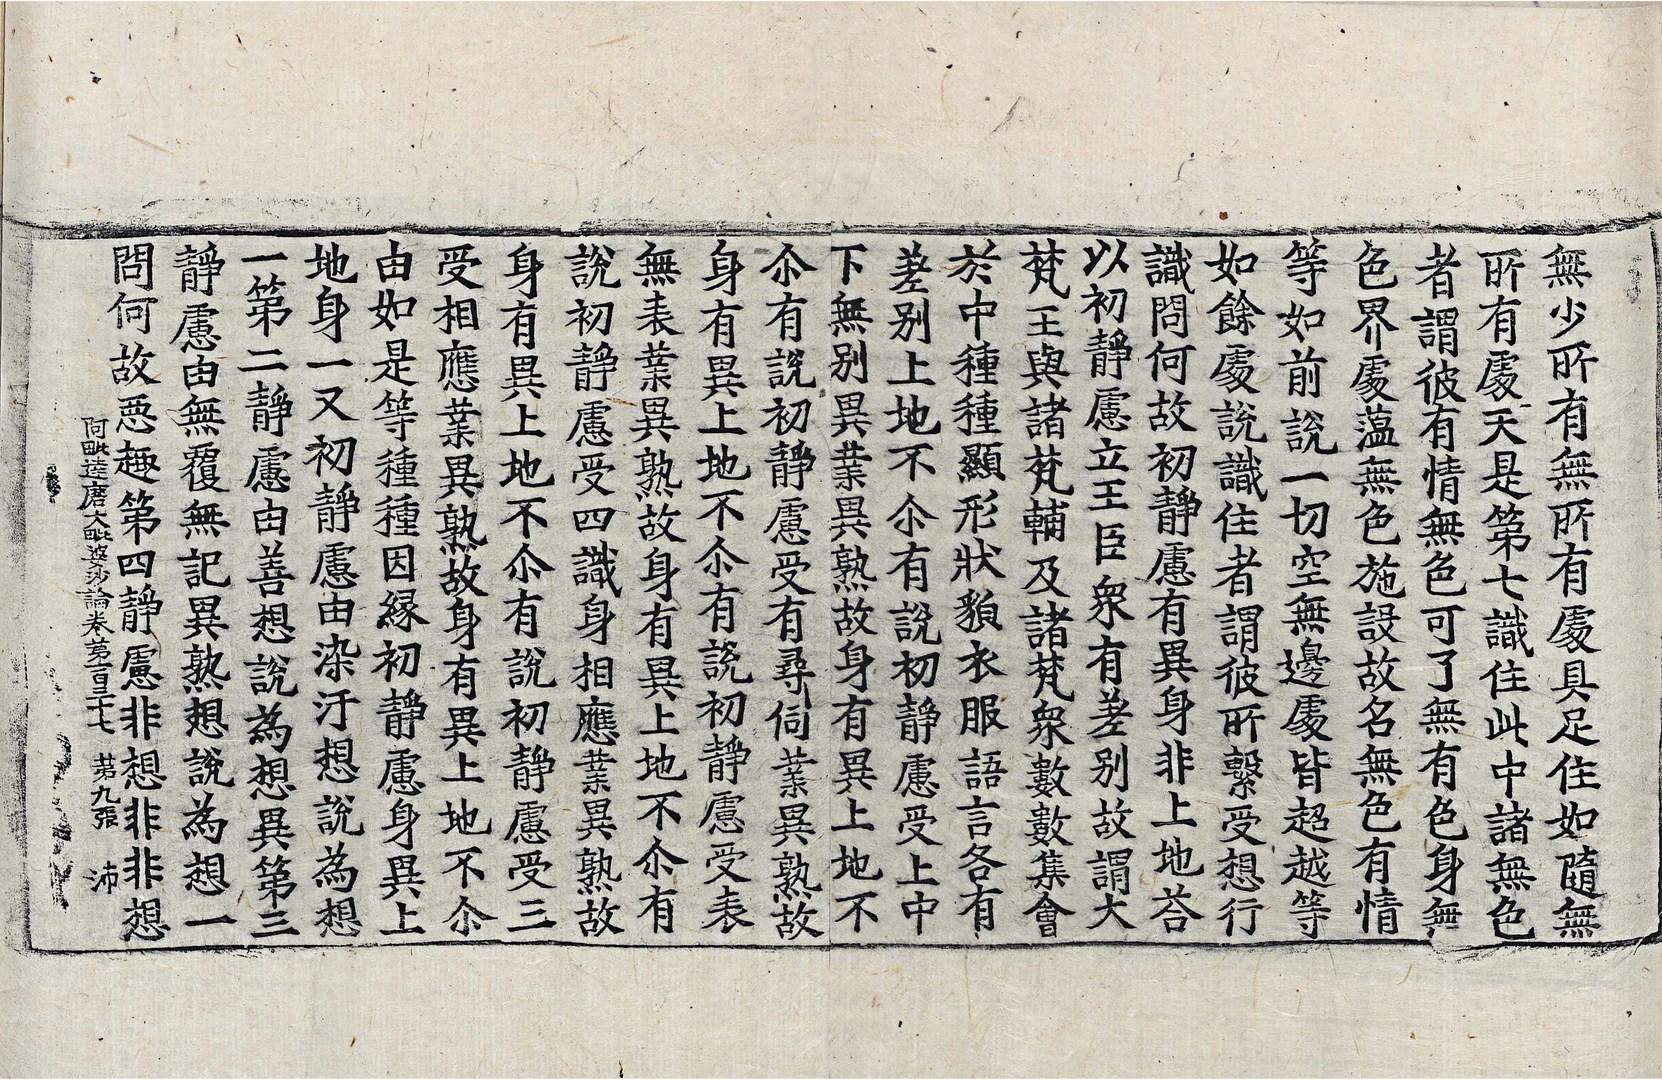 無少所有無所有處具足住如隨無
所有處天是第七識住此中諸無色
者謂彼有情無色可了無有色身無
色界處蘊無色施設故名無色有情
等如前說一切空無邊處皆超越等
如餘處說識住者謂彼所繫受想行
識問何故初靜慮有異身非上地荅
以初靜慮立王臣衆有差別故謂大
梵王與諸梵輔及諸梵衆數數集會
於中種種顯形狀貌衣服語言各有
差別上地不尒有說初靜慮受上中
下無別異業異熟故身有異上地不
尒有說初靜慮受有尋伺業異熟故
身有異上地不尒有說初靜慮受表
無表業異熟故身有異上地不尒有
說初靜慮受四識身相應業異熟故
身有異上地不尒有說初靜慮受三
受相應業異熟故身有異上地不尒
由如是等種種因緣初靜慮身異上
地身一又初靜慮由染汙想說為想
一第二靜慮由善想說為想異第三
靜慮由無覆無記異熟想說為想一
問何故惡趣第四靜慮非想非非想
阿毗達磨大毗婆沙論卷第一百三十七 第九張 沛